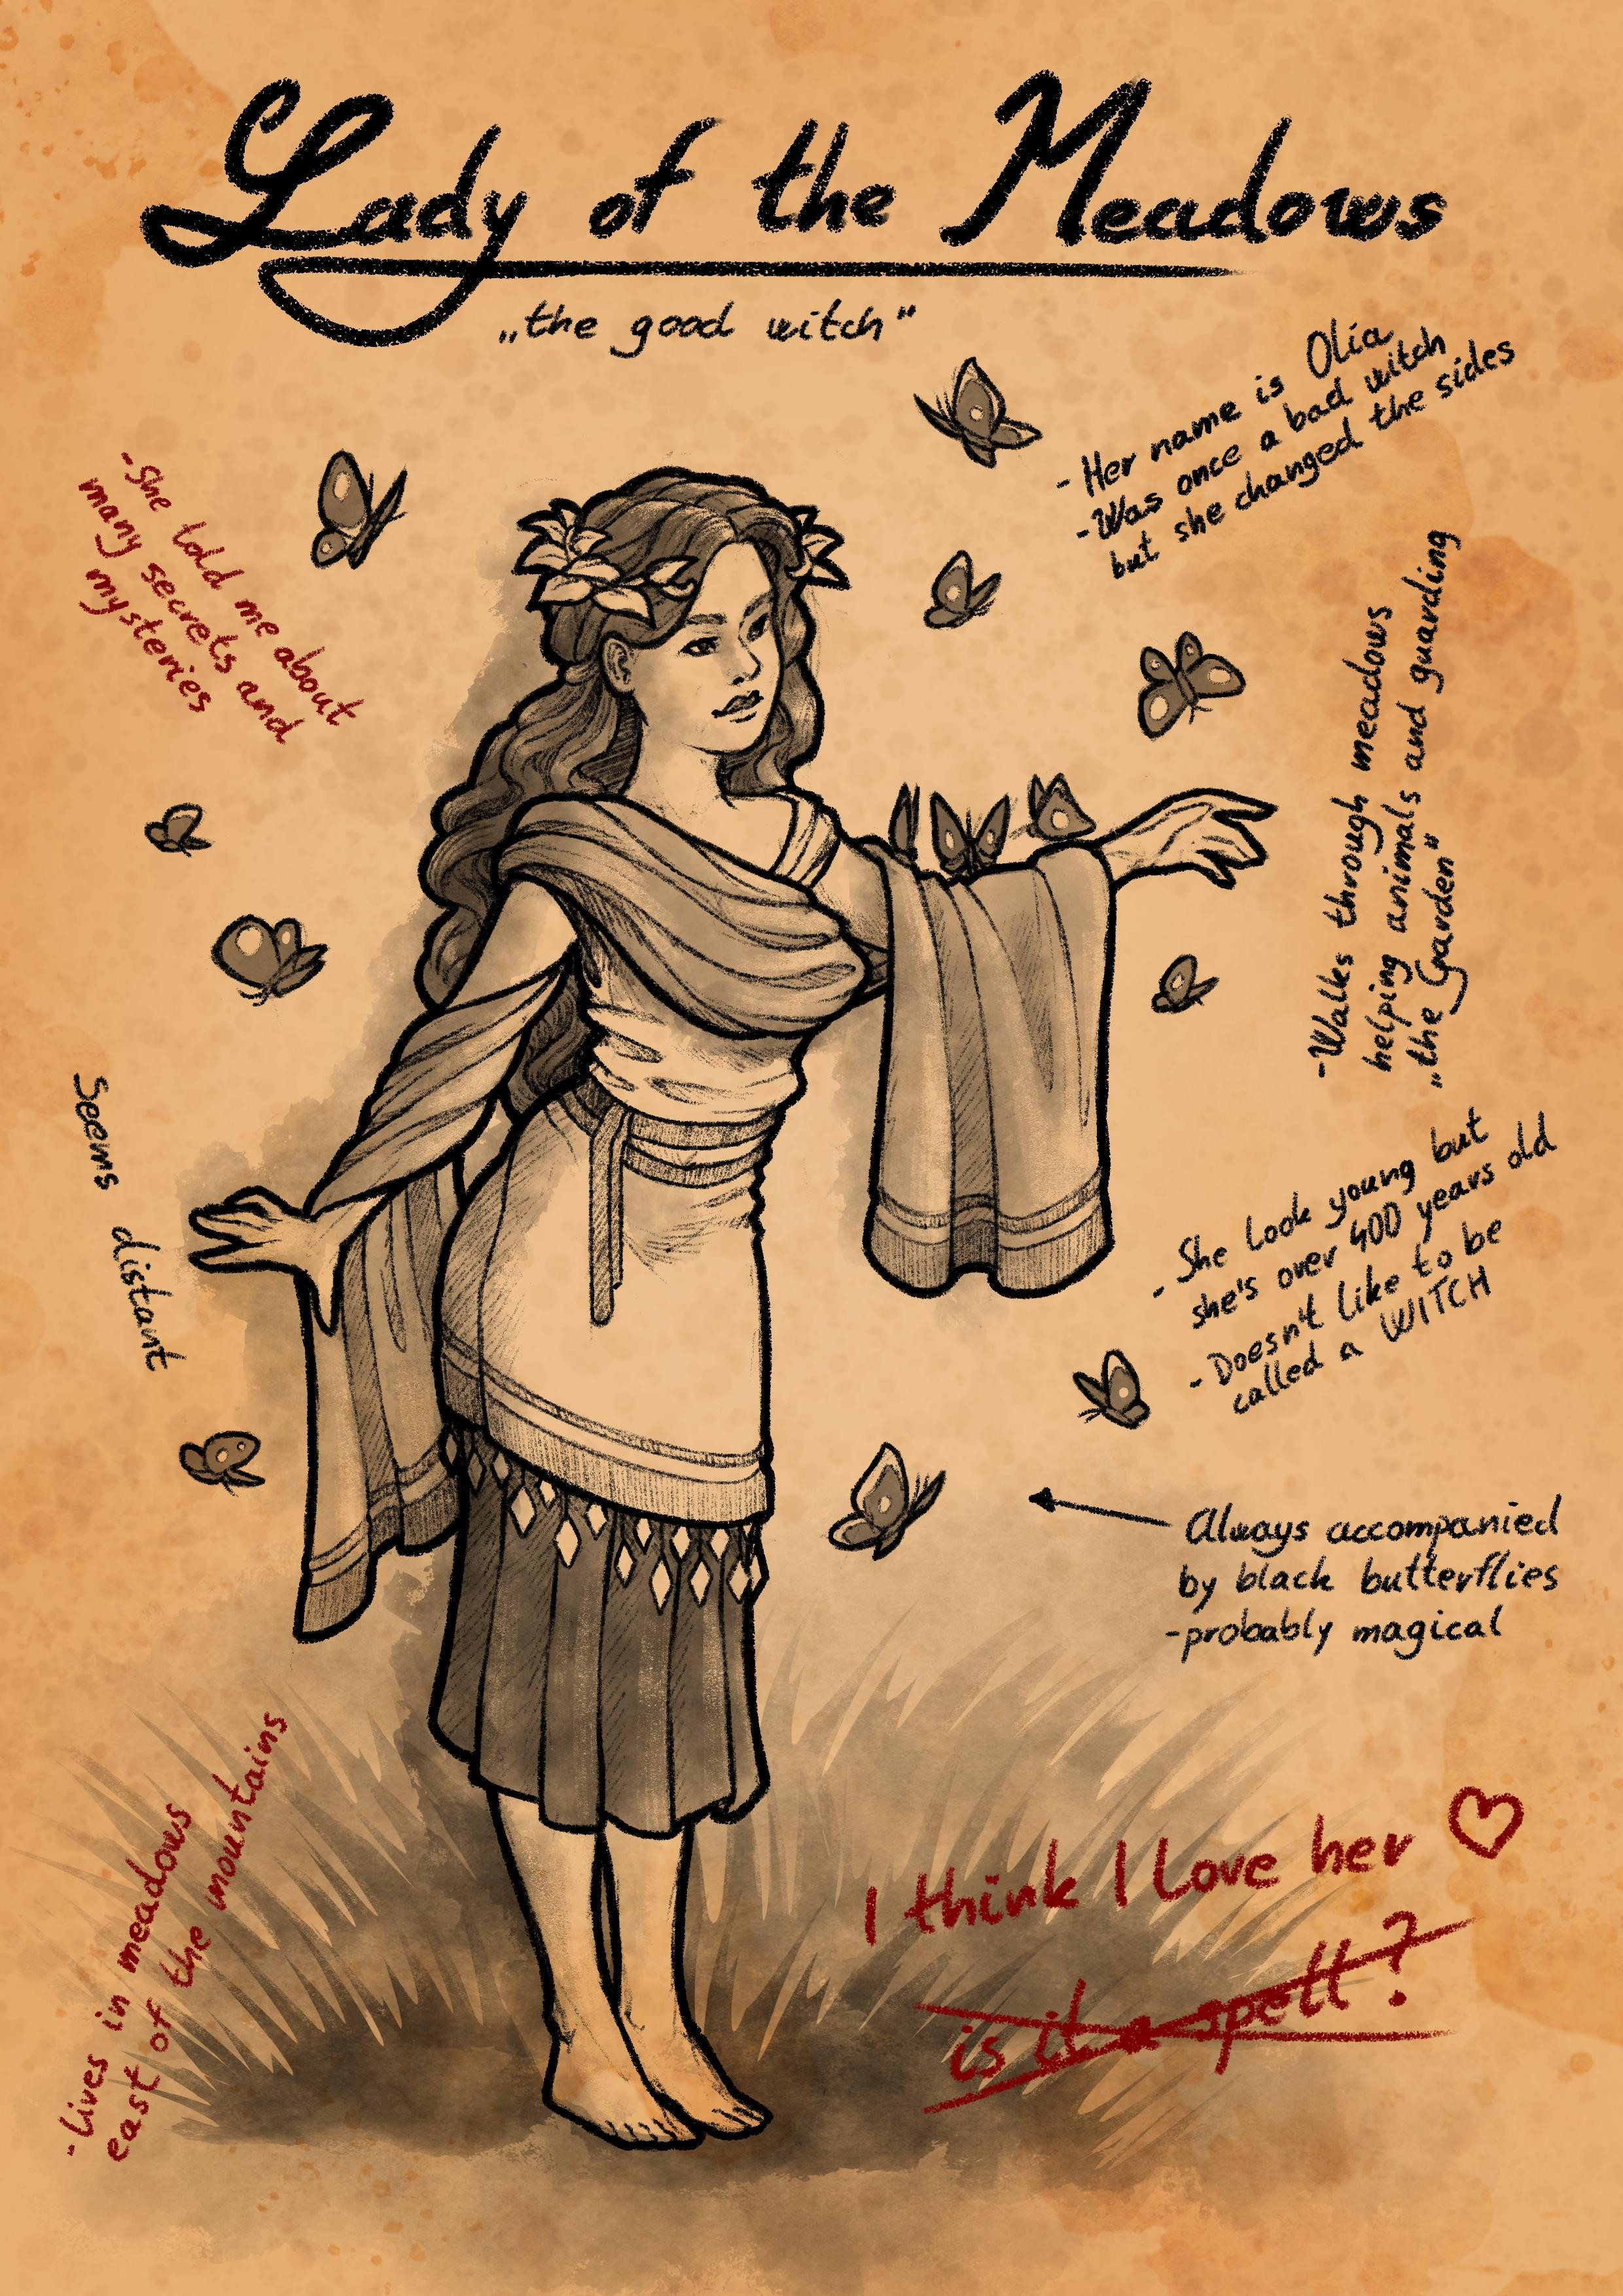 Lady of the Meadows
„the good witch"
- Her name is Olia
- Was once a bad witch
but she changed the sides
- She told me about
many secrets and
mysteries
- Walks through meadows
helping animals and guarding
„the Garden"
Seems distant
- She look young but
she's over 400 years old
- Doesn't like to be
called a WITCH
Always accompanied
by black butterflies
- probably magical
- Lives in meadows
east of the mountains
I think I love her ♡
is it a spell?